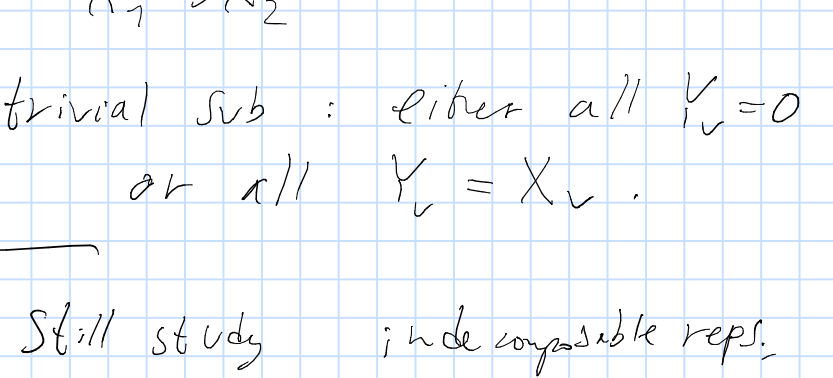 trivial sub : either all Y_v = 0
or all Y_v = X_v .
Still study indecomposable reps.